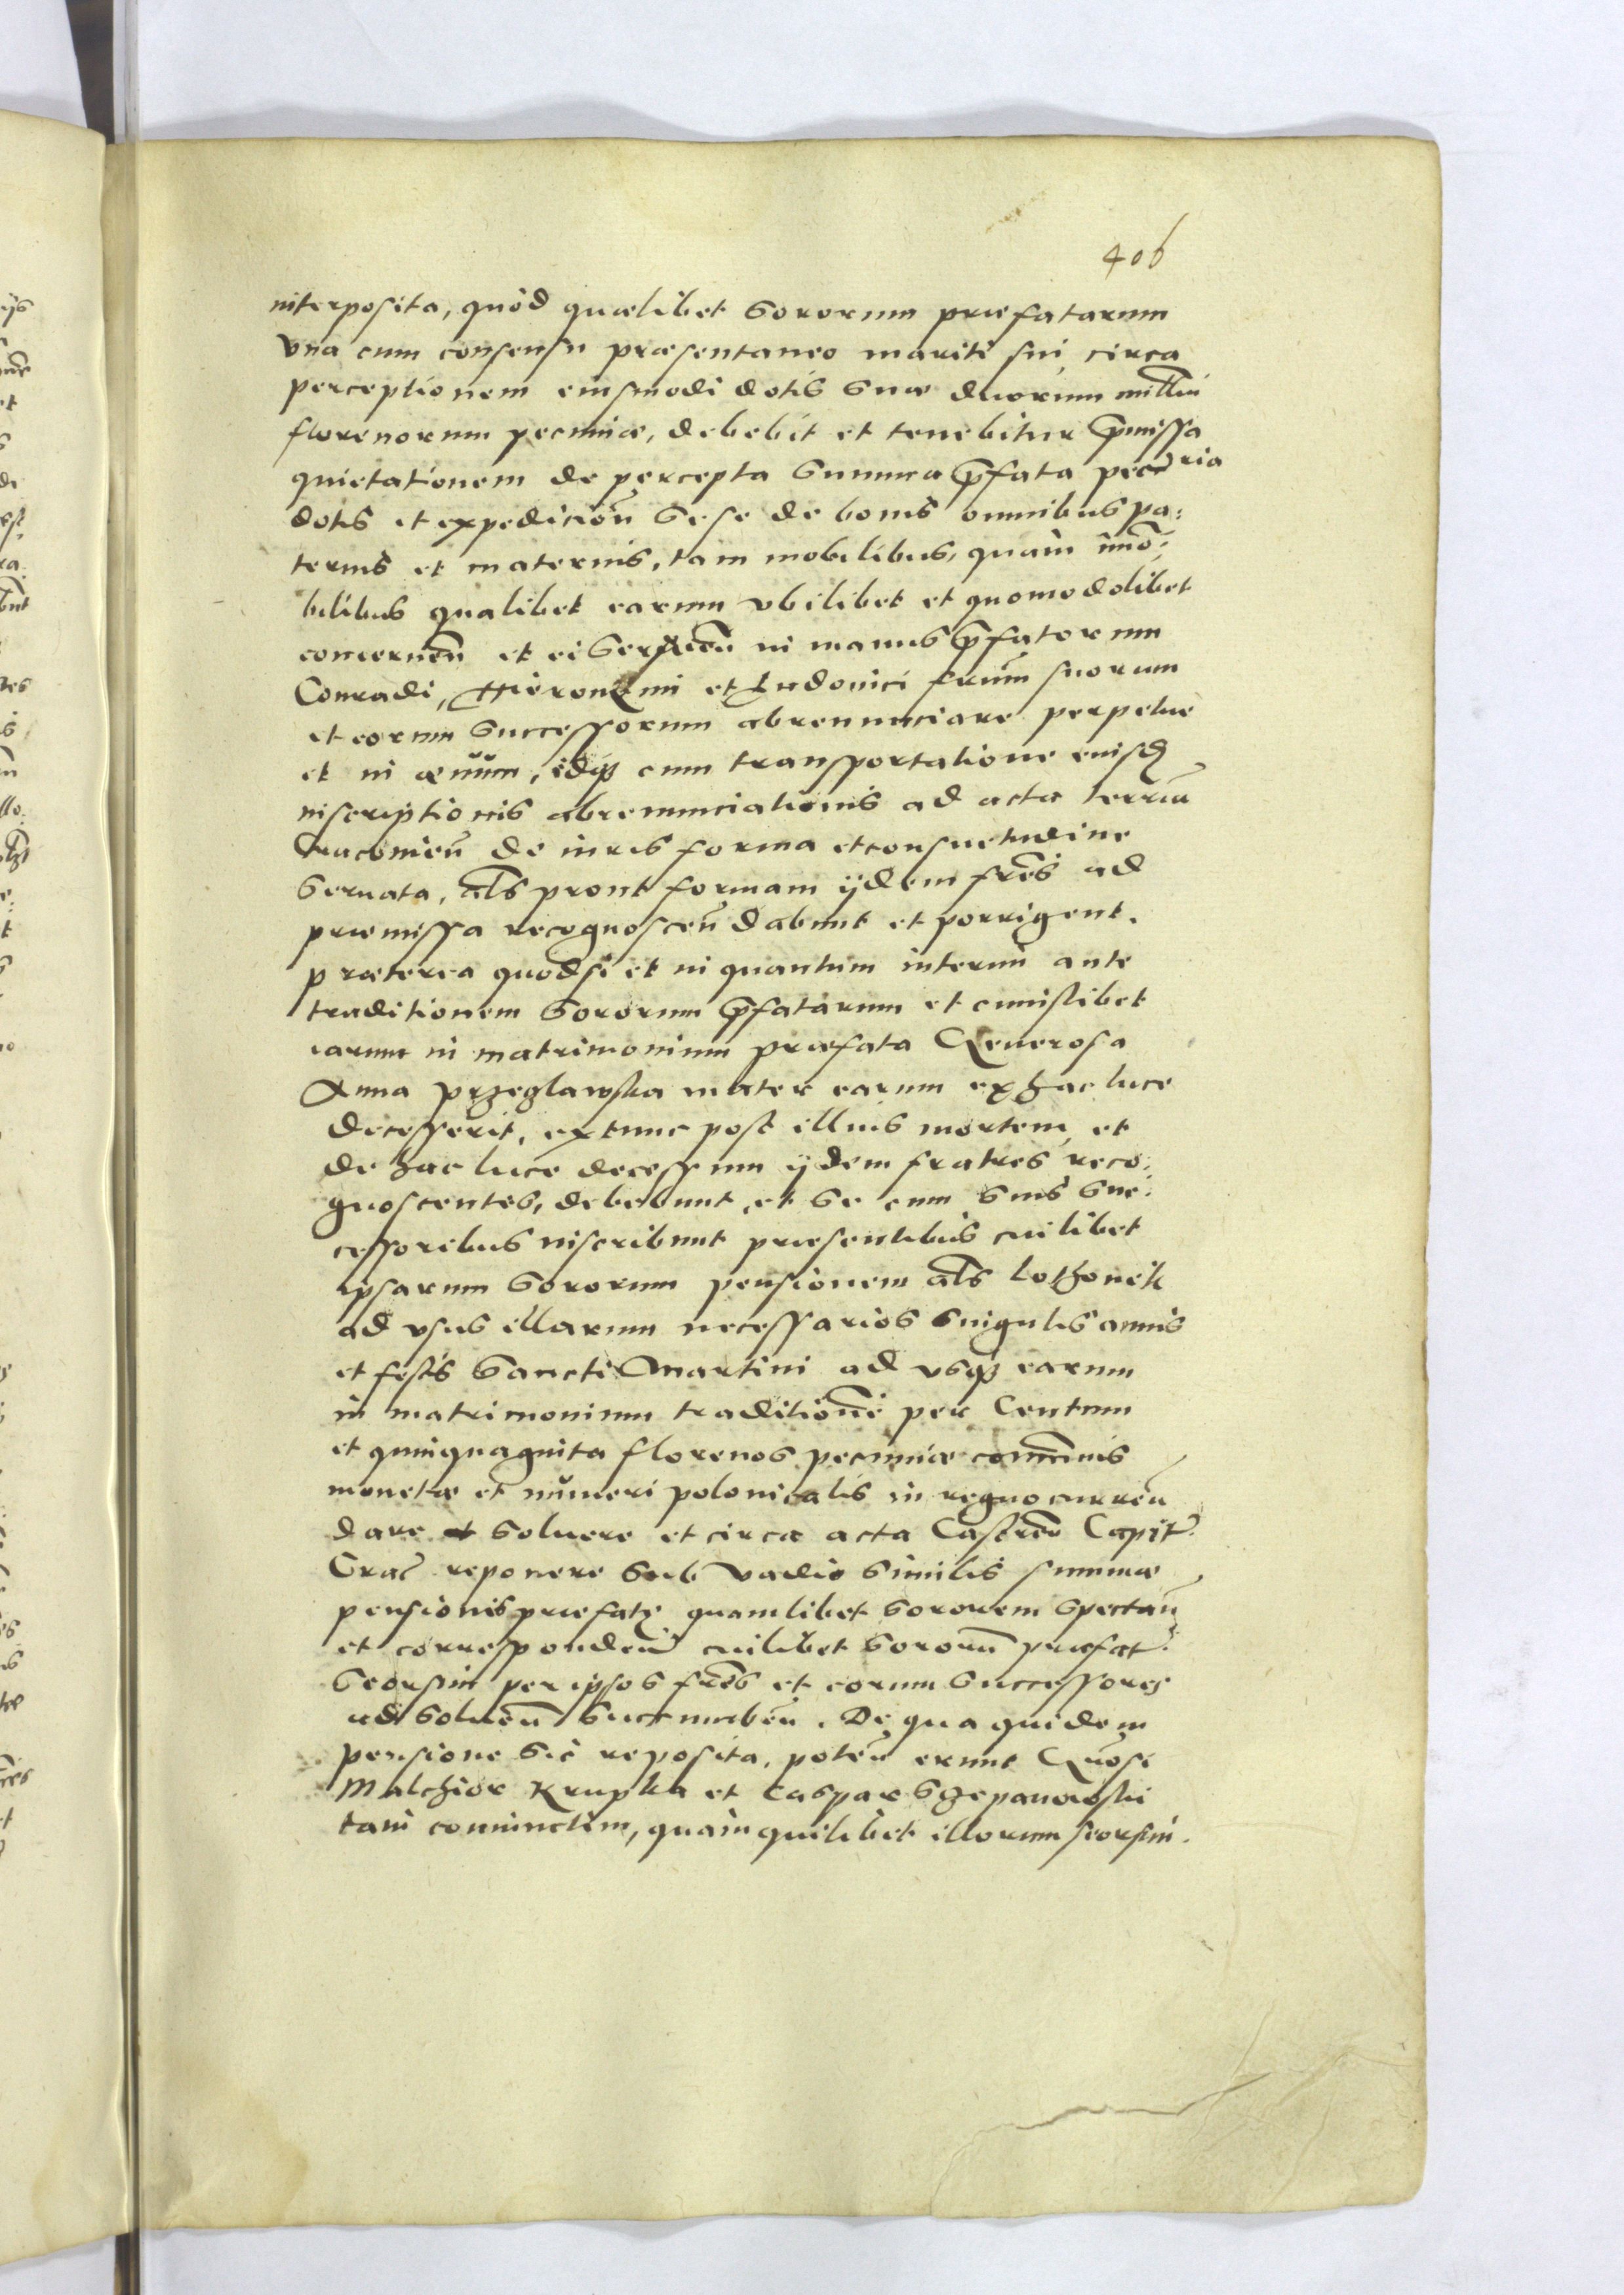 406
interposita, quòd quælibet Sororum præfatarum
vna cum consensu præsentaneo mariti sui, circa
perceptionem eiusmodi dotis suæ duorum millium
florenorum pecuniæ, debebit et tenebitur pmissa
quietationem de percepta summa pfata pecuria
dotis et expedicion sese de bonis omnibus pa:
ternis et maternis, tam mobilibus, quàm immo:
bilibus qualibet earum vbilibet et quomodolibet
concernen et ei seruien in manus pfatorum
Conradi, Hieronymi et Ludouici frum suorum
et eorum successorum abrenunciare perpetue
et in æuum, idq3 cum transportatione eiusd
inscriptionis abrenunciationis ad acta terrtia
Cracouien de iuris forma et consuetudine
seruata, als prout formam ijdem fres ad
præmissa recognoscen dabunt et porrigent.
præterea quodsi et in quantum interim ante
traditionem Sororum pfatarum et cuiuslibet
earum in matrimonium præfata Generosa
Anna przeglawska mater earum ex hac luce
decesserit, extunc post illius mortem et
de hac luce decessum ijdem fratres reco:
gnoscentes, debebunt et se cum suis suc:
cessoribus inscribunt præsentibus cuilibet
ipsarum Sororum pensionem als lothonek
ad vsus illarum necessarios singulis annis
et festis Sancti Martini ad vsq3 earum
in matrimonium traditione per Centum
et quinquaginta florenos pecuniæ comunis
monetæ et numeri polonicalis in regno curren
dare et soluere et circa acta Castren Capit
Crac reponere sub vadio similis summæ
pensionis præfatę quamlibet sororem spectan
et corresponden cuilibet sororum præfat
seorsim per ipsos fres et eorum successores
ad soluen succumben. De qua quidem
pensione sic reposita, poten erunt Gnosi
Malchior Krupka et Caspar Szepanowski
tam coniunctim, quàm quilibet illorum seorsim.